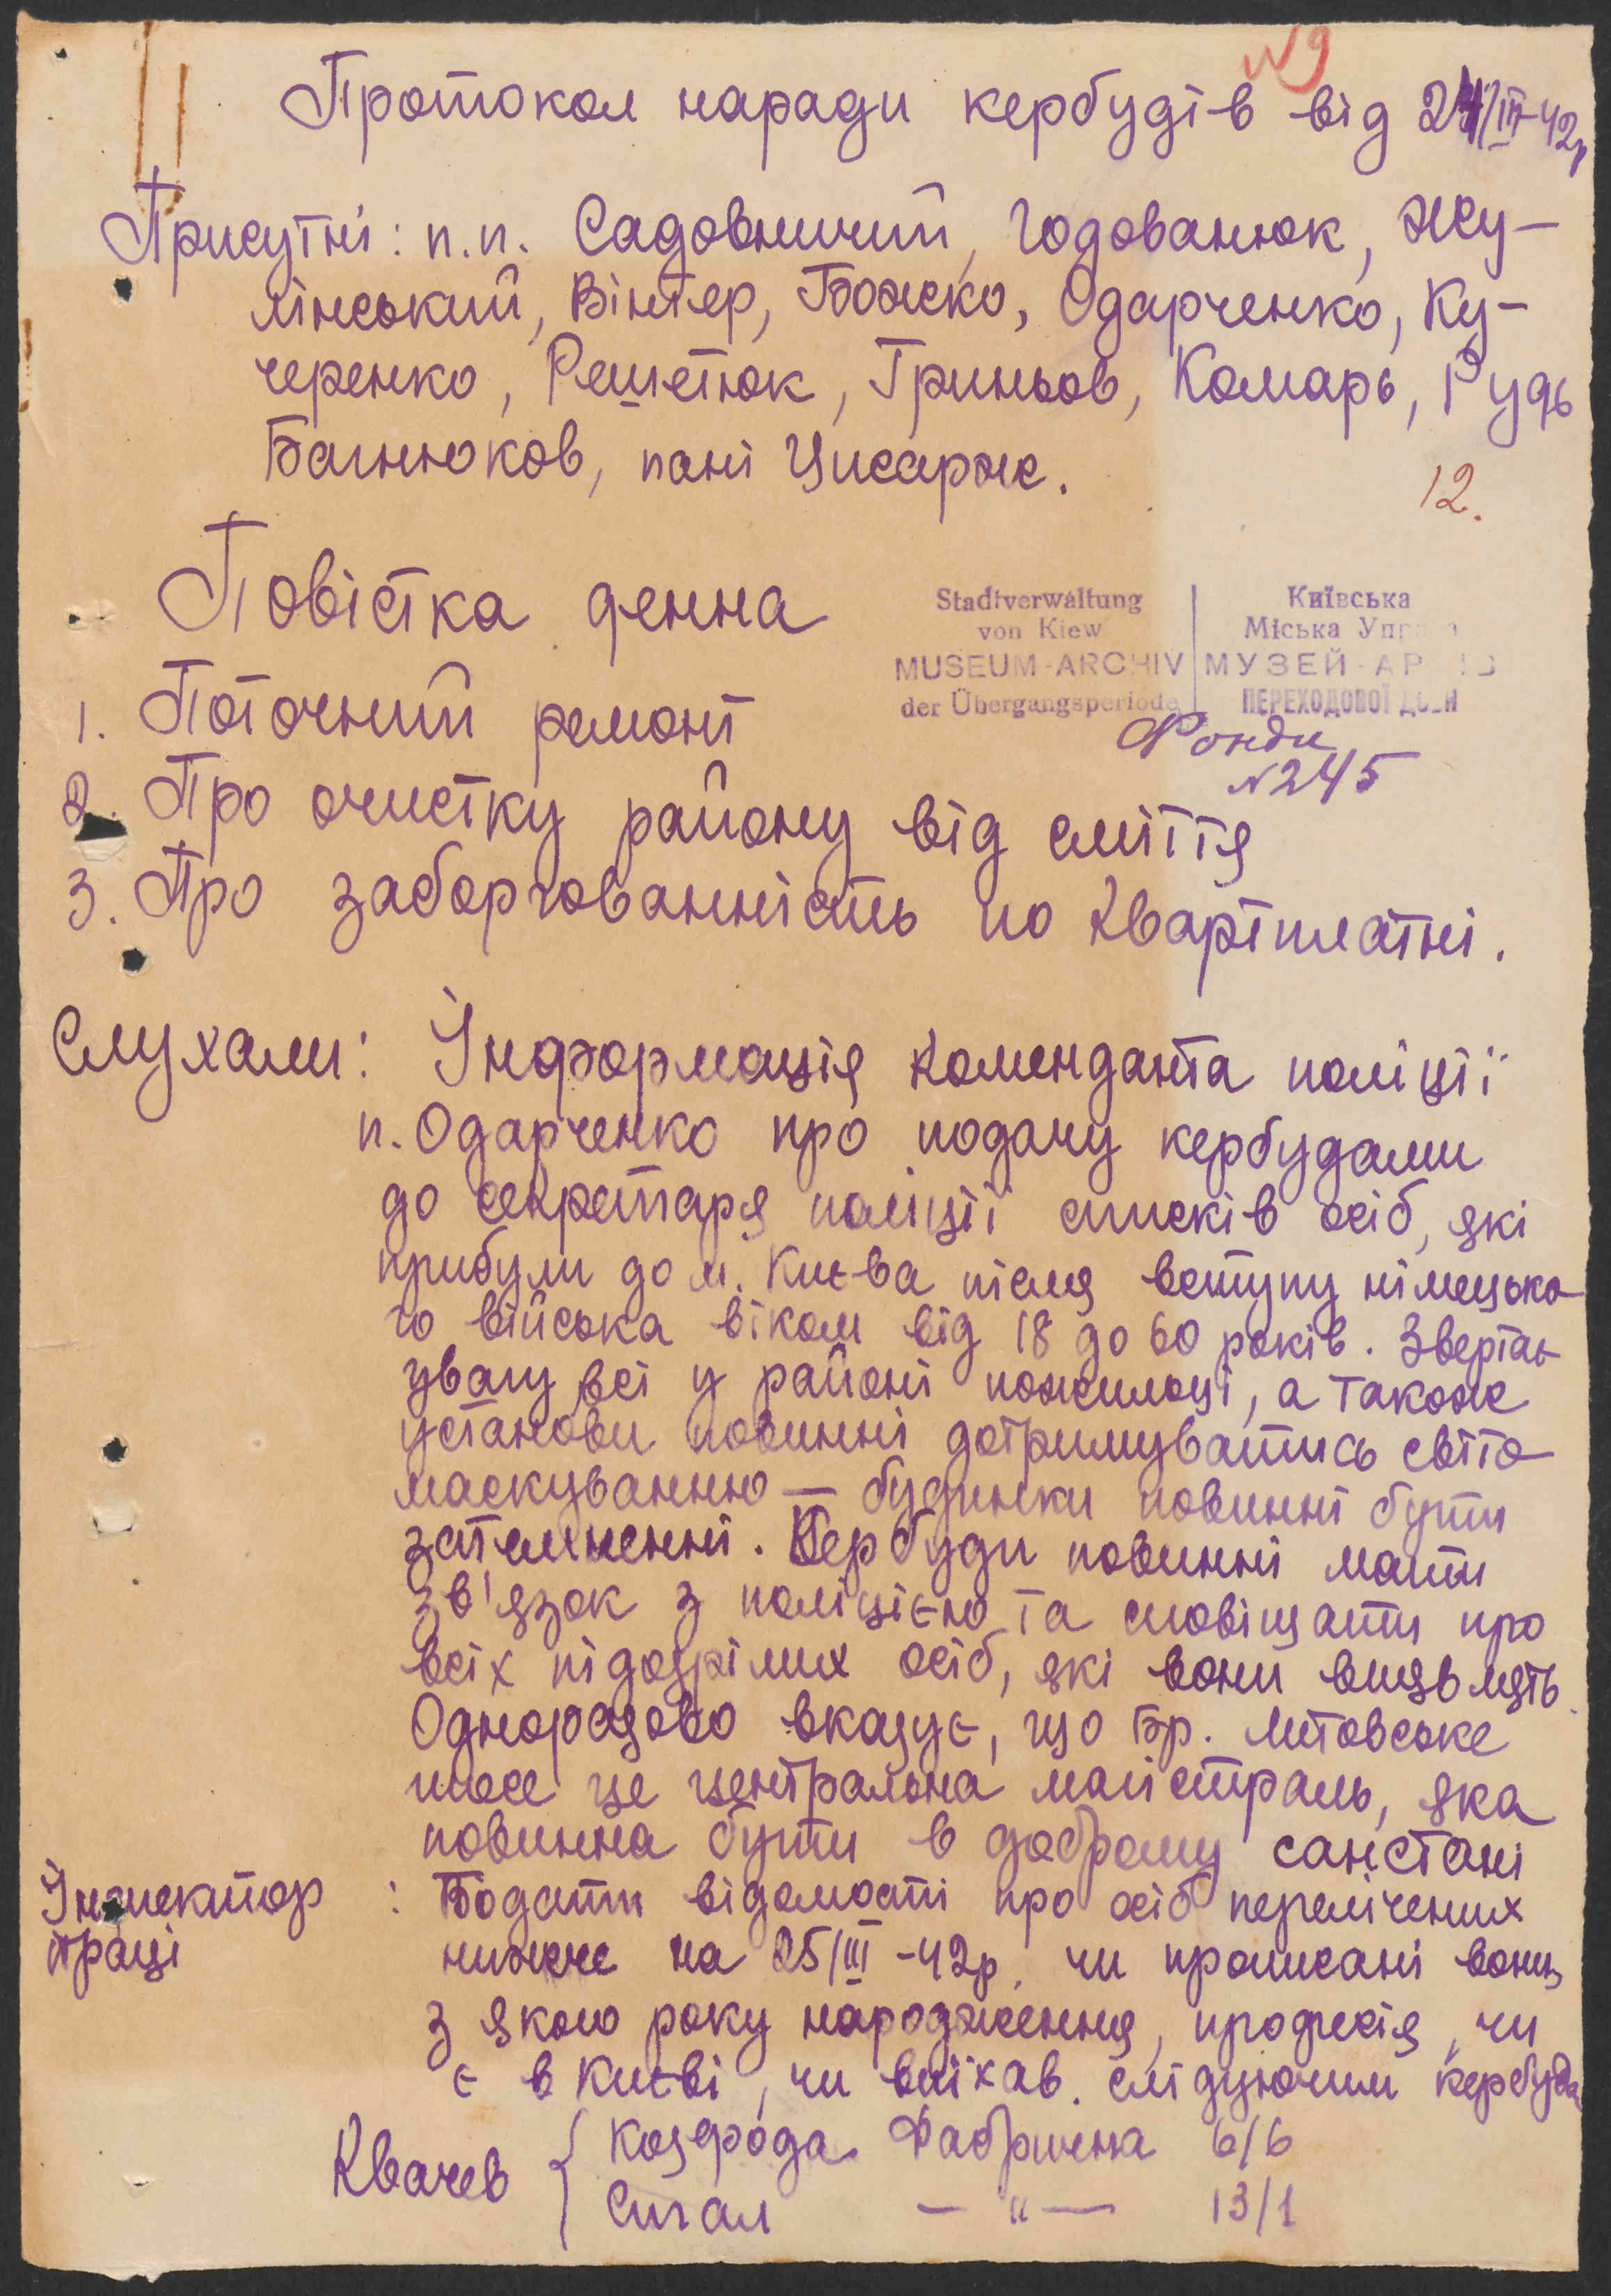 N9
Протокол наради кербудів від 24/III-42р
Присутні: п.п. Садовничий, Годованюк, Жу-
лінський, Вінтер, Божко, Одарченко, Ку-
черенко, Решетюк, Гриньов, Комарь, Рудь
Багнюков, пані Цисарж.
12.
Повістка денна
Stadtverwaltung von Kiew MUSEUM-ARCHIV der Übergangsperiode
Київська Міська Упр МУЗЕЙ-АР ПЕРЕХОДОВОЇ
1. Поточний ремонт
Фонди
N245
2. Про очистку району від сміття
3. Про заборгованність по квартплатні.
Слухали: Інформація коменданта поліції
п. Одарченко про подачу кербудами
до секретаря поліції списків осіб, які
прибули до м. Києва після вступу німецько
го війська віком від 18 до 60 років. Звертає
увагу всі у районі пожильці, а також
установи повинні дотримуватись світо
маскуванню — будинки повинні бути
затемненні. Кербуди повинні мати
зв'язок з поліцією та сповіщати про
всіх підозрілих осіб, які вони виявлять.
Одноразово вказує, що Бр. Литовське
шосе це центральна майстраль, яка
повинна бути в доброму санстані
Інспектор праці : Подати відомості про осіб перелічених
нижче на 25/III-42р. чи прописані вони,
з якого року народження, професія, чи
є в Києві, чи виїхав. слідуючим кербуда
Квачев { Козярода Фабрична 6/6
Сигал — " — 13/1